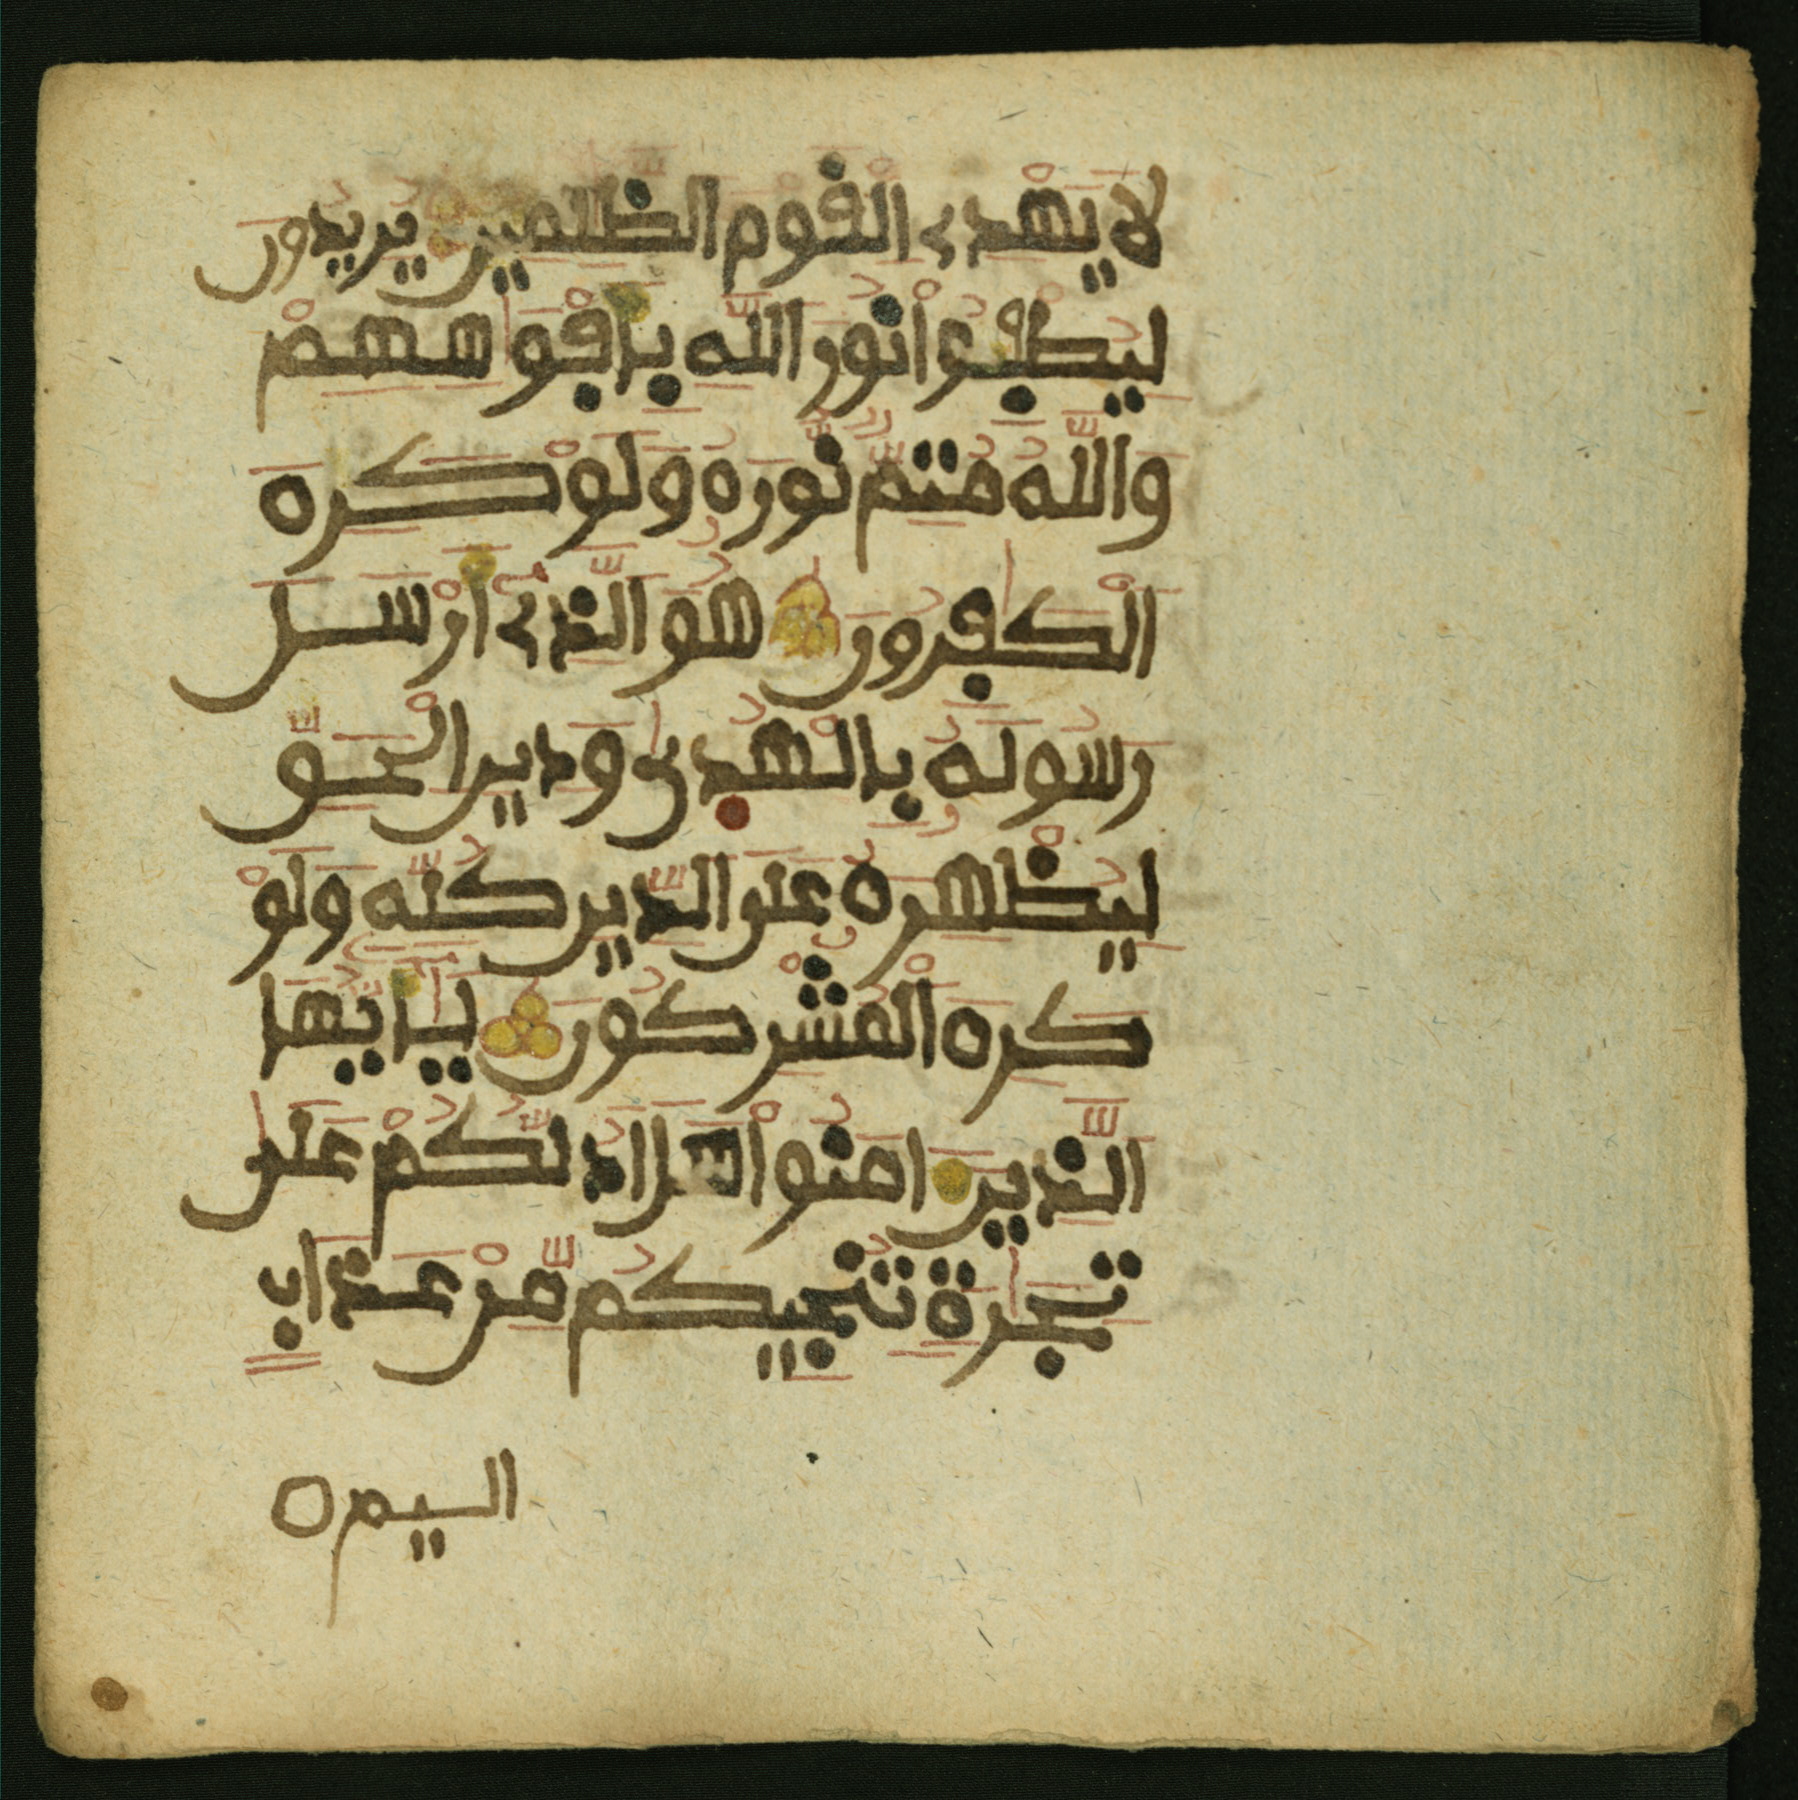 لَا يَهْدِى الْقَوْمَ الظَّٰلِمِينَ يُرِيدُونَ
لِيُطْفِـُٔوا نُورَ اللَّهِ بِأَفْوَٰهِهِمْ
وَاللَّهُ مُتِمٌّ نُّورَهُ وَلَوْ كَرِهَ
الْكَٰفِرُونَ هُوَ الَّذِى أَرْسَلَ
رَسُولَهُ بِالْهُدَىٰ وَدِينِ الْحَقِّ
لِيُظْهِرَهُ عَلَى الدِّينِ كُلِّهِ وَلَوْ
كَرِهَ الْمُشْرِكُونَ يَٰٓأَيُّهَا
الَّذِينَ ءَامَنُوا هَلْ أَدُلُّكُمْ عَلَىٰ
تِجَٰرَةٍ تُنجِيكُم مِّنْ عَذَابٍ
اليم ه